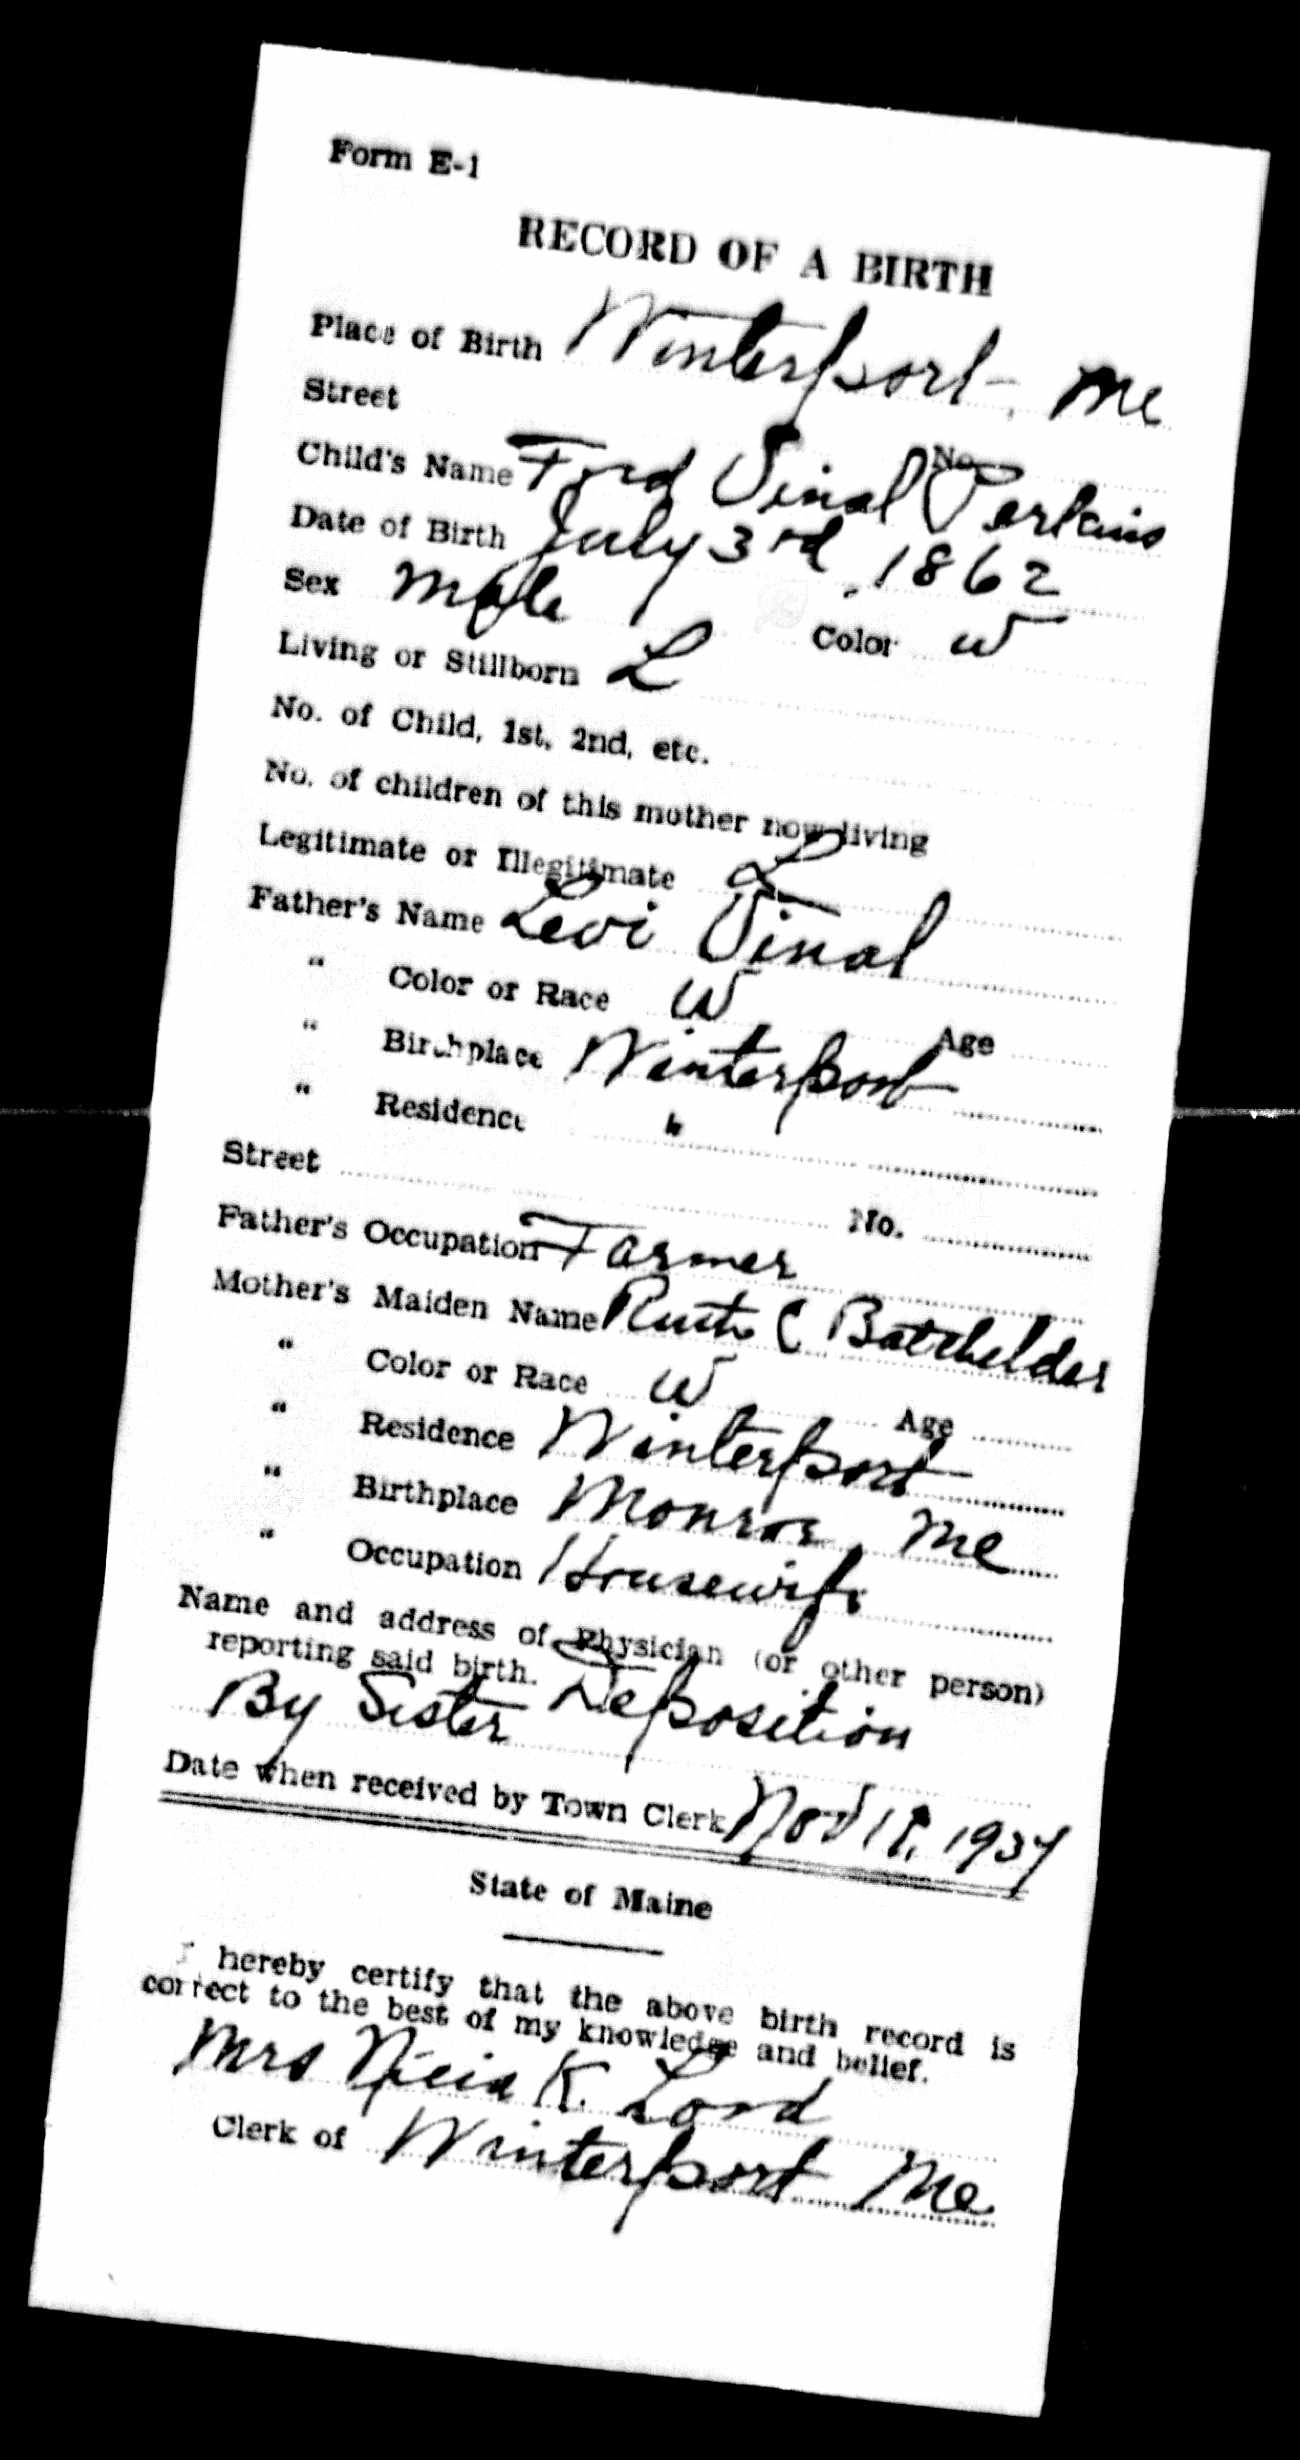 Form E-1
RECORD OF A BIRTH
Place of Birth Winterport, Me
Street No.
Child's Name Ford Vinal Perkins
Date of Birth July 3rd, 1862
Sex Male Color W
Living or Stillborn L
No. of Child, 1st, 2nd, etc.
No. of children of this mother now living
Legitimate or Illegitimate L
Father's Name Levi Vinal
" Color or Race W Age
" Birthplace Winterport
" Residence "
Street No.
Father's Occupation Farmer
Mother's Maiden Name Ruth C Batchelder
" Color or Race W Age
" Residence Winterport
" Birthplace Monroe, Me
" Occupation Housewife
Name and address of Physician (or other person)
reporting said birth. Deposition
By Sister
Date when received by Town Clerk Nov 18, 1937
State of Maine
I hereby certify that the above birth record is
correct to the best of my knowledge and belief.
Mrs K. Lord
Clerk of Winterport Me